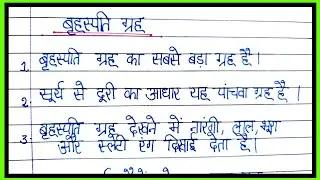 बृहस्पति ग्रह
1. बृहस्पति ग्रह का सबसे बड़ा ग्रह है।
2. सूर्य से दूरी का आधार यह पांचवा ग्रह है।
3. बृहस्पति ग्रह देखने में नारंगी, लाल, भूरा
और स्लेटी रंग दिखाई देता है।